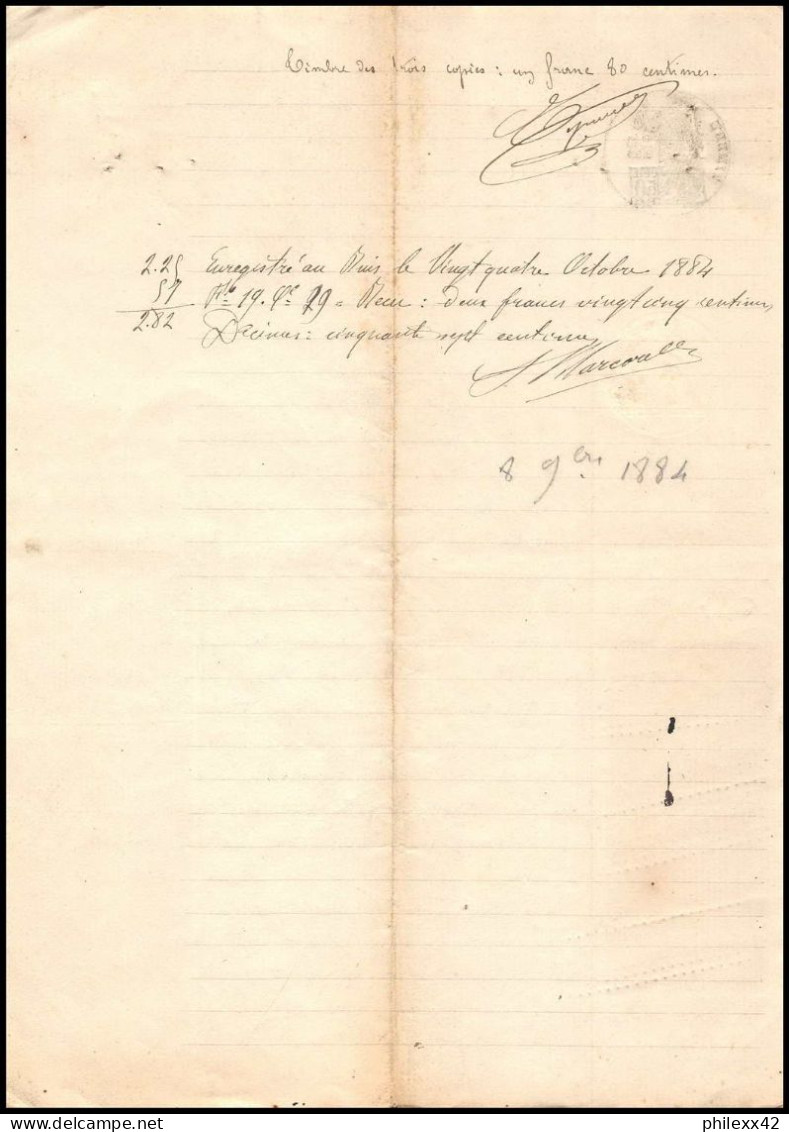 Timbre des trois copies : un franc 80 centimes.
2.25 Enregistré au Buis le Vingt quatre Octobre 1884
57 19. 99 = Reçu : deux francs vingt cinq centimes,
2.82 Décimes : cinquante sept centimes
8 9bre 1884
philexx42